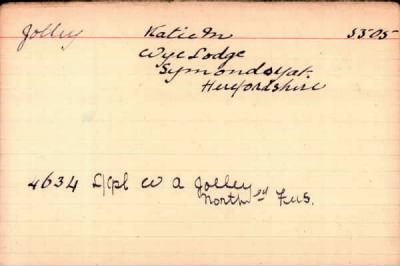 Jolley Katie M 5505
Wye Lodge
Symonds Yat.
Herefordshire
4634 L/Cpl W A Jolley
North'ld Fus.